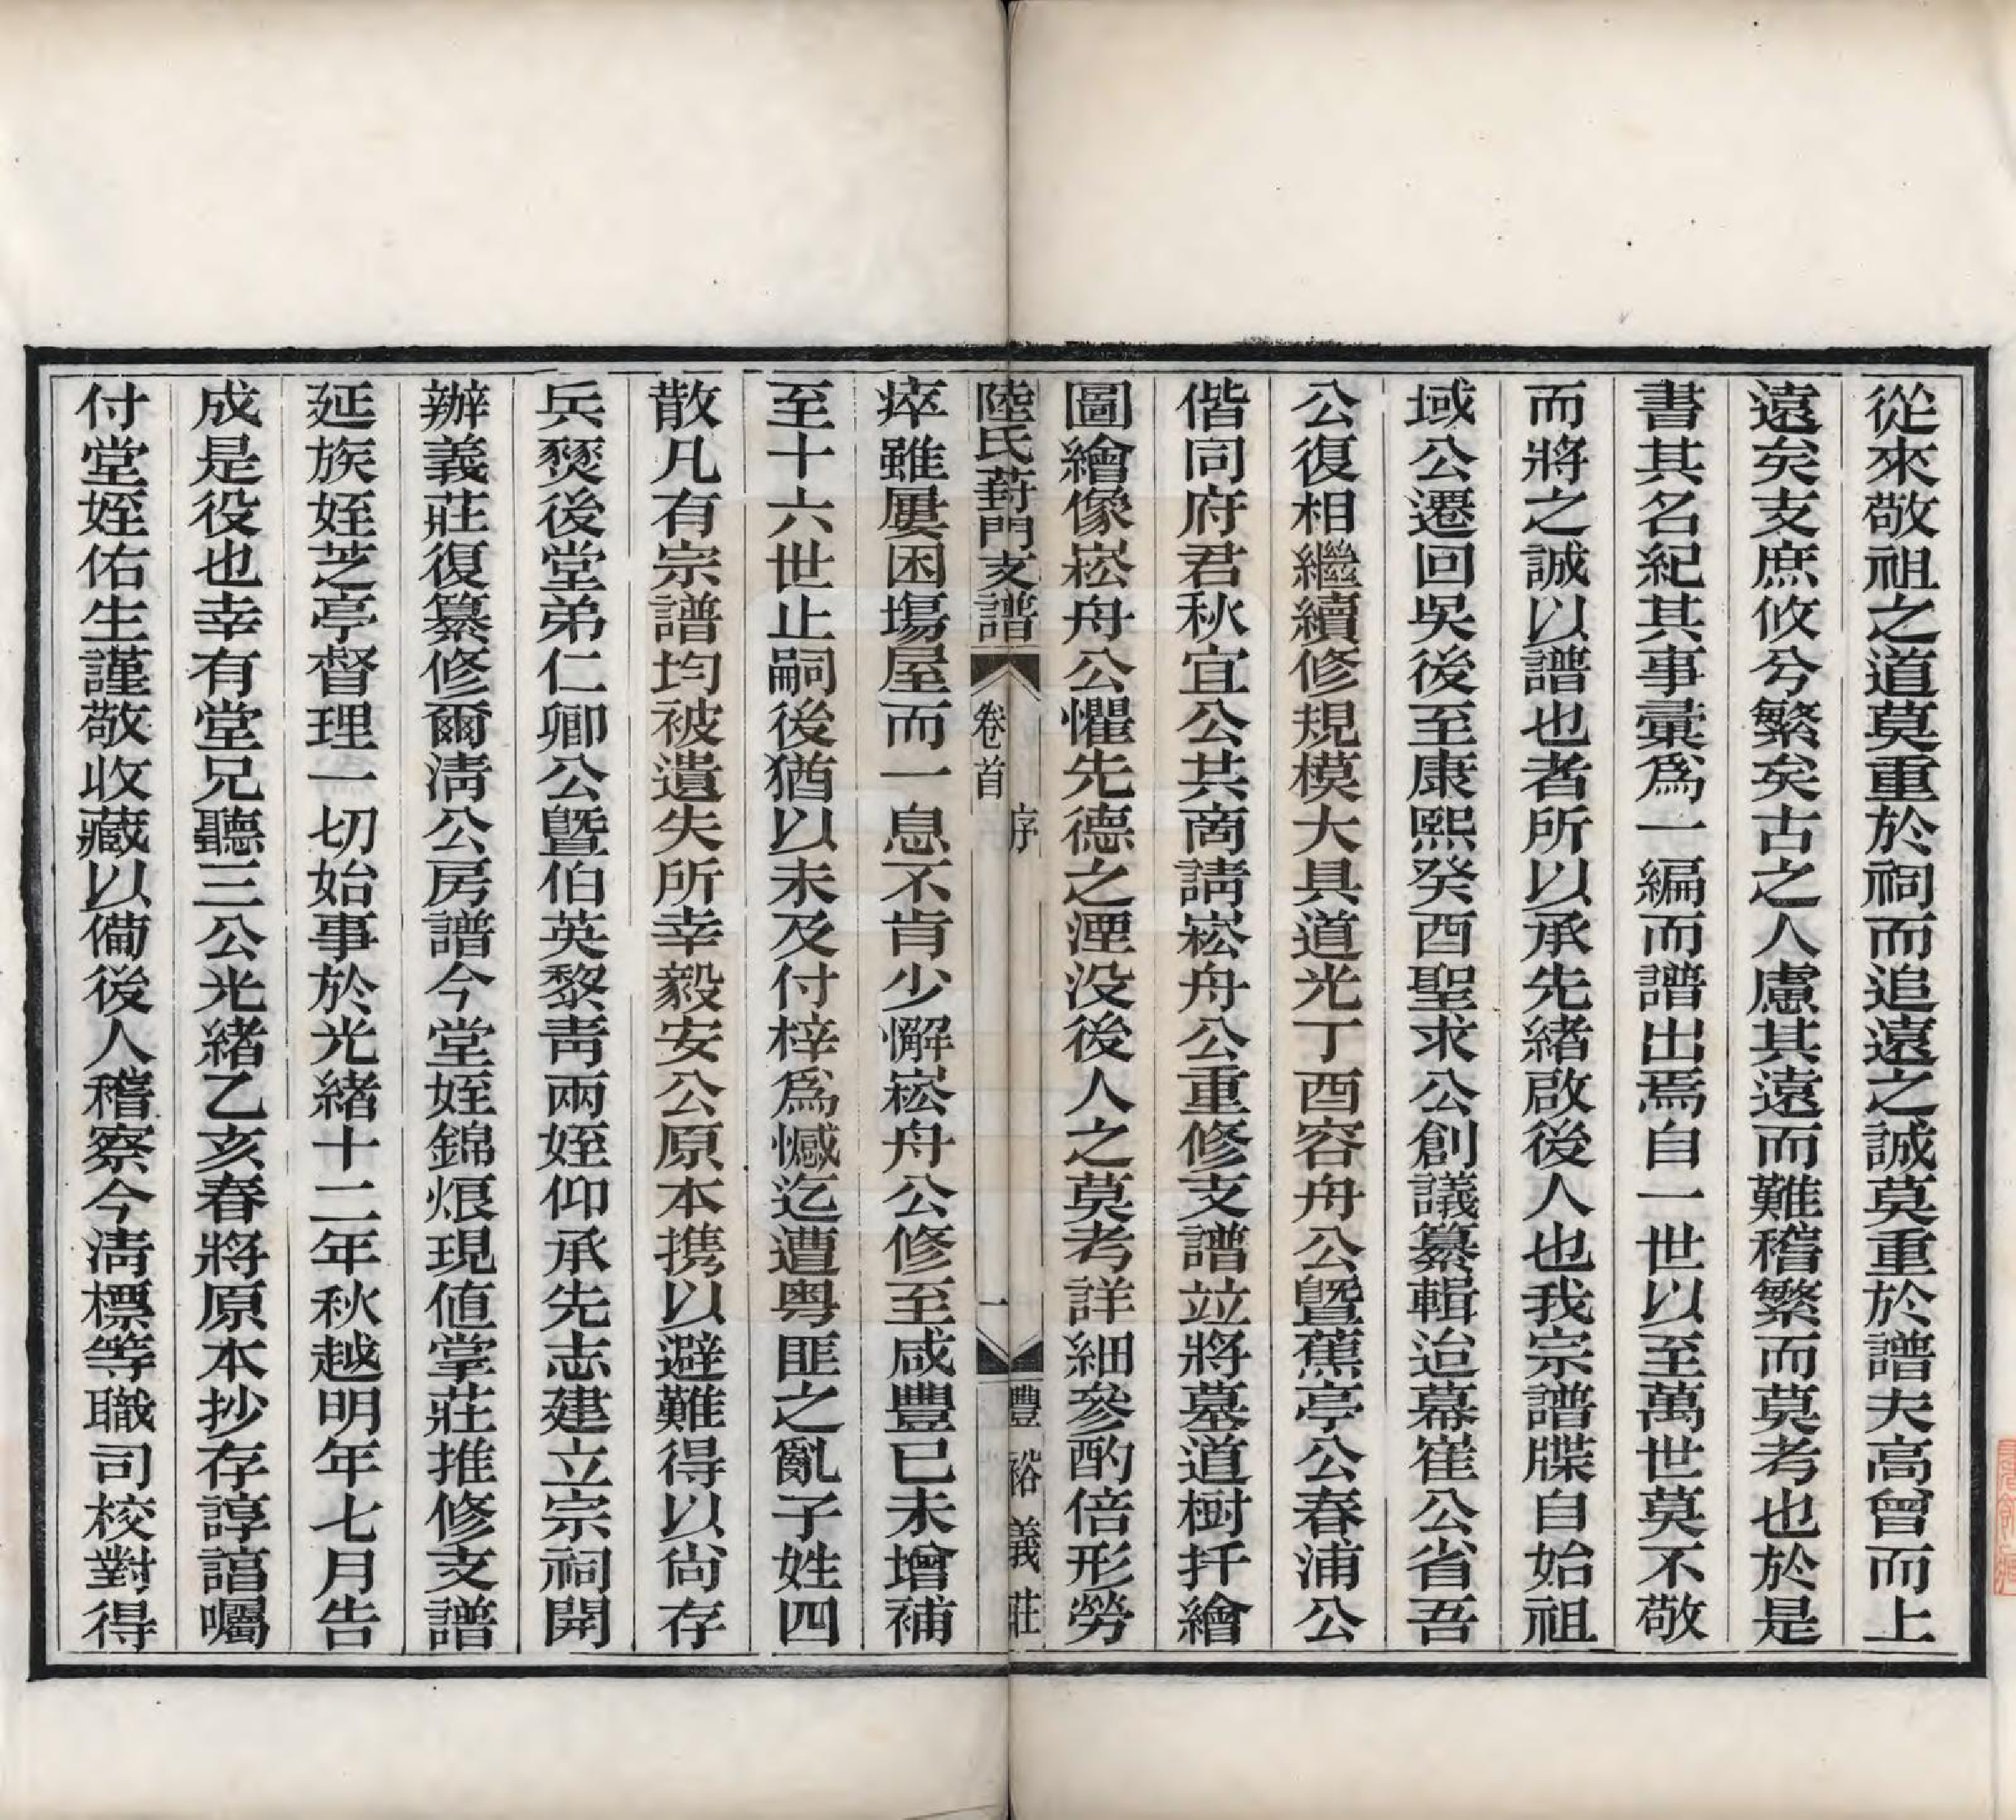 從來敬祖之道莫重於祠而追遠之誠莫重於譜夫高曾而上
遠矣支庶攸兮繁矣古之人慮其遠而難稽繁而莫考也於是
書其名紀其事彙爲一編而譜出焉自一世以至萬世莫不敬
而將之誠以譜也者所以承先緒啟後人也我宗譜牒自始祖
域公遷回吳後至康熙癸酉聖求公創議纂輯迨幕崔公省吾
公復相繼續修規模大具道光丁酉容舟公暨蕉亭公春浦公
偕同府君秋宜公共商請崧舟公重修支譜竝將墓道樹扦繪
圖繪像崧舟公懼先德之湮没後人之莫考詳細參酌倍形勞
陸氏葑門支譜
卷首
序
一
豐裕義莊
瘁雖屢困塲屋而一息不肯少懈崧舟公修至咸豐已未增補
至十六世止嗣後猶以未及付梓爲憾迄遭粤匪之亂子姓四
散凡有宗譜均被遺失所幸毅安公原本携以避難得以尙存
兵燹後堂弟仁卿公暨伯英黎靑兩姪仰承先志建立宗祠開
辦義莊復纂修爾淸公房譜今堂姪錦烺現値掌莊推修支譜
延族姪芝亭督理一切始事於光緒十二年秋越明年七月告
成是役也幸有堂兄聽三公光緒乙亥春將原本抄存諄諄囑
付堂姪佑生謹敬收藏以備後人稽察今淸標等職司校對得